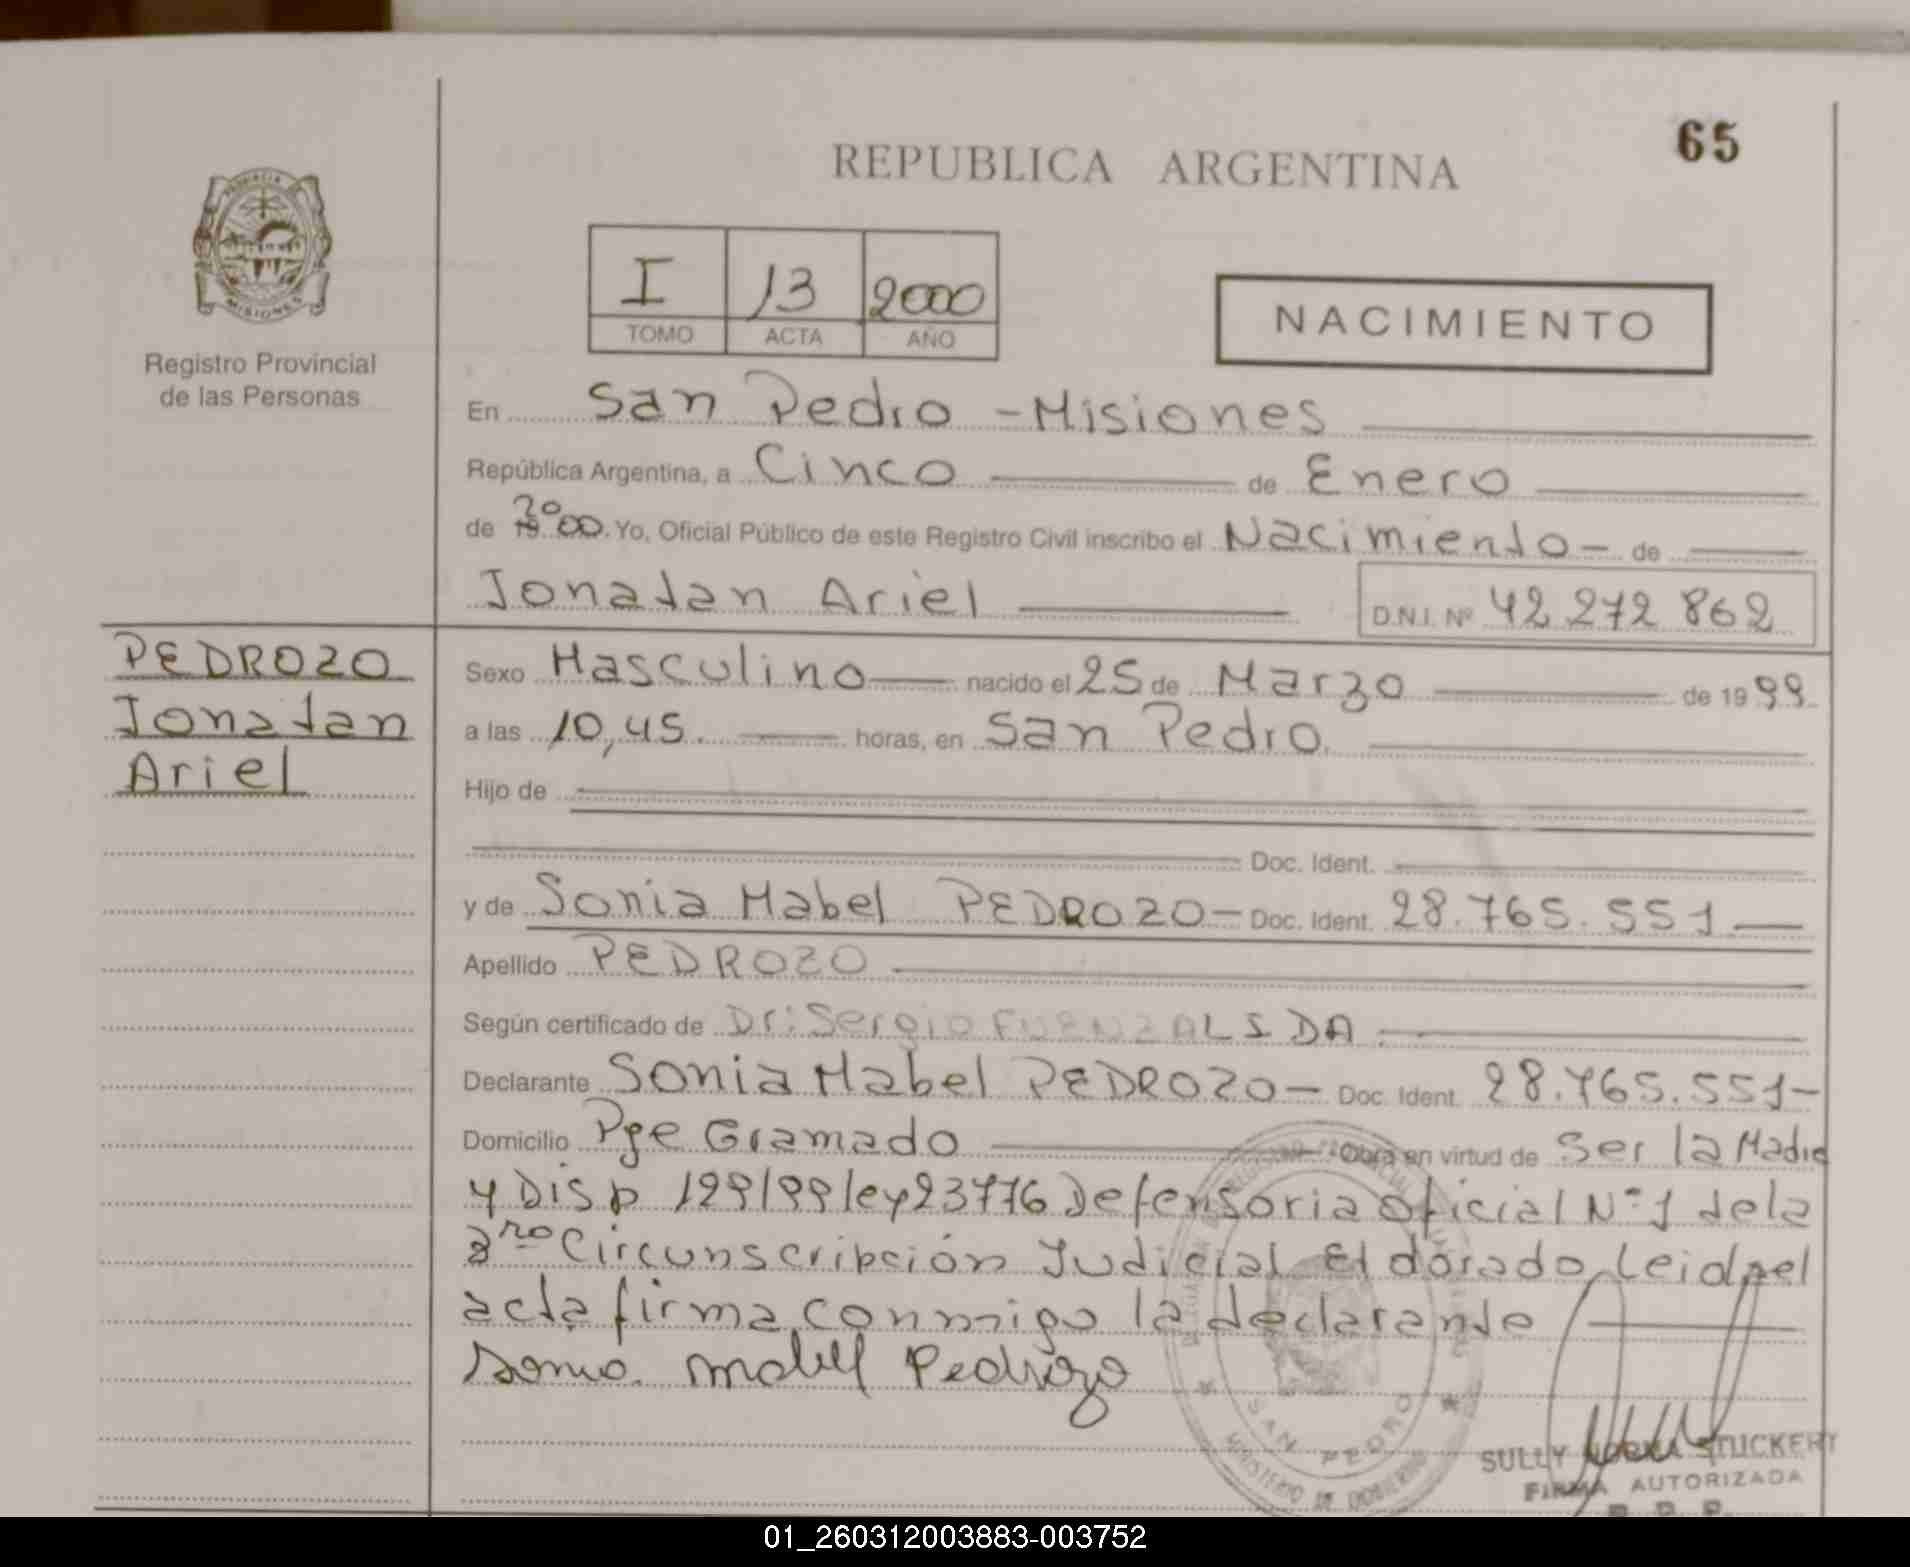 65
REPUBLICA ARGENTINA
PROVINCIA
MISIONES
I 13 2000
TOMO ACTA AÑO
NACIMIENTO
Registro Provincial
de las Personas
En San Pedro - Misiones
República Argentina, a Cinco de Enero
de 2000. Yo, Oficial Público de este Registro Civil inscribo el Nacimiento - de
Jonatan Ariel D.N.I. Nº 42 272 862
PEDROZO
Jonatan
Ariel
Sexo Masculino nacido el 25 de Marzo de 19 99
a las 10,45. horas, en San Pedro.
Hijo de
Doc. Ident.
y de Sonia Mabel PEDROZO - Doc. Ident. 28.765.551
Apellido PEDROZO
Según certificado de Dr: Sergio FUENZALIDA.
Declarante Sonia Mabel PEDROZO - Doc. Ident. 28.765.551-
Domicilio Pje Gramado Obra en virtud de Ser la Madre
y Disp 129/99 ley 23776 Defensoria oficial Nº 1 de la
3ro Circunscripción Judicial Eldorado, Leida el
acta firma conmigo la declarante
Sonia Mabel Pedrozo
SAN PEDRO
MINISTERIO DE GOBIERNO
SULLY NORMA STUCKERT
FIRMA AUTORIZADA
R. P. P.
01_260312003883-003752